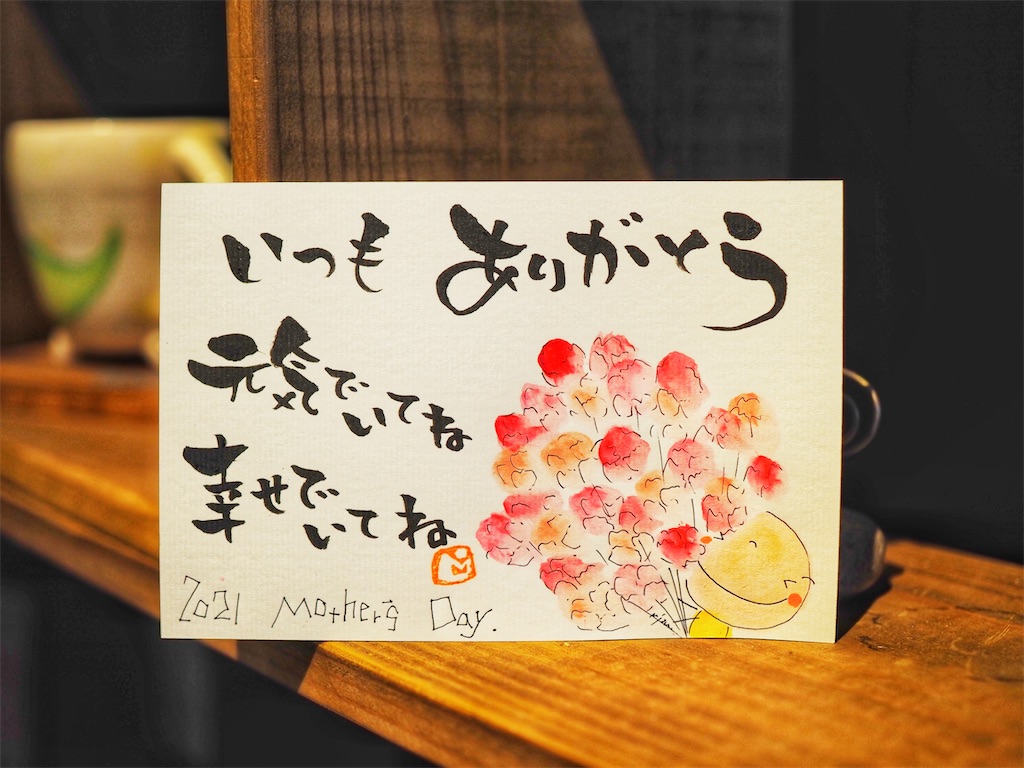 いつも ありがとう
元気でいてね
幸せでいてね
2021 Mother's Day.